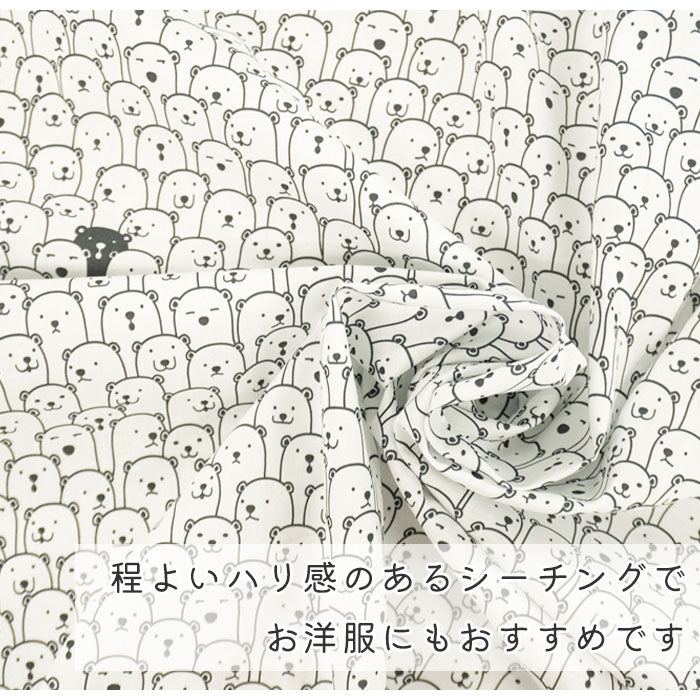 程よいハリ感のあるシーチングで
お洋服にもおすすめです